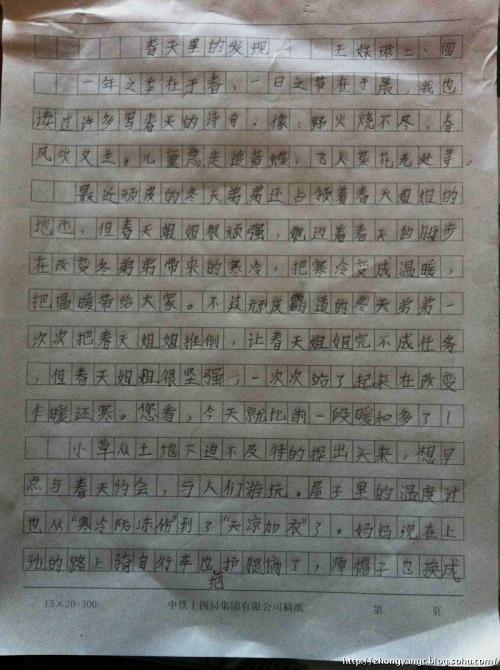 春天里的发现 王姝珺二、四
一年之季在于春，一日之节在于晨，我也
读过许多写春天的诗句，像：野火烧不尽，春
风吹又生。儿童急走追黄蝶，飞入菜花无处寻。
最近顽皮的冬天弟弟还占领着春天姐姐的
地位，但春天姐姐很顽强，她迈着春天的脚步
在改变冬弟弟带来的寒冷，把寒冷变成温暖，
把温暖带给大家。不过顽皮霸道的冬天弟弟一
次次把春天姐姐推倒，让春天姐姐完不成任务
，但春天姐姐很坚强，一次次站了起来在改变
乍暖还寒。您看，今天就比前一段暖和多了！
小草从土地下迫不及待的探出头来，想早
点与春天约会，与人们游玩。屋子里的温度计
也从“寒冷防冻伤”到了“天凉加衣”了。妈妈现在上
班的路上骑自行车也把护腿摘了，厚帽子也换成
15×20=300 中铁十四局集团有限公司稿纸 第 页
http://zhongyangr.blog.sohu.com/